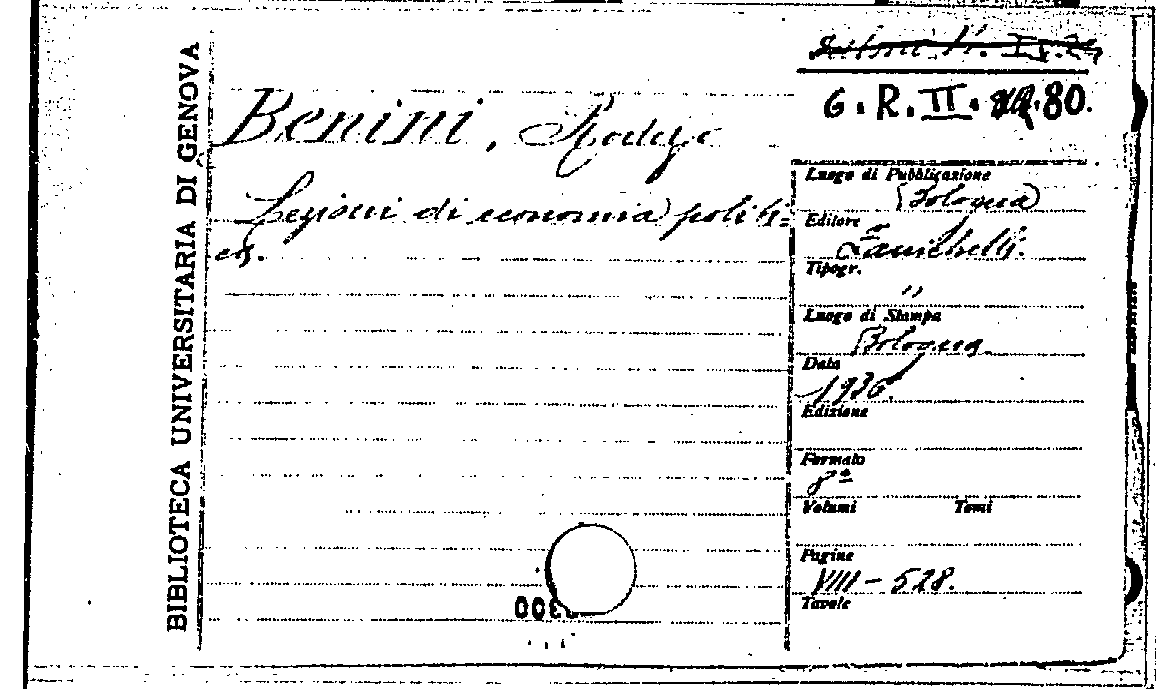 BIBLIOTECA UNIVERSITARIA DI GENOVA
G. R. II. 80.
Benini, Rodolfo
Lezioni di economia politi=
ca.
Luogo di Pubblicazione
Bologna
Editore
Zanichelli.
Tipogr.
"
Luogo di Stampa
Bologna
Data
1936.
Edizione
Formato
8º
Volumi Tomi
Pagine
VIII - 528.
Tavole